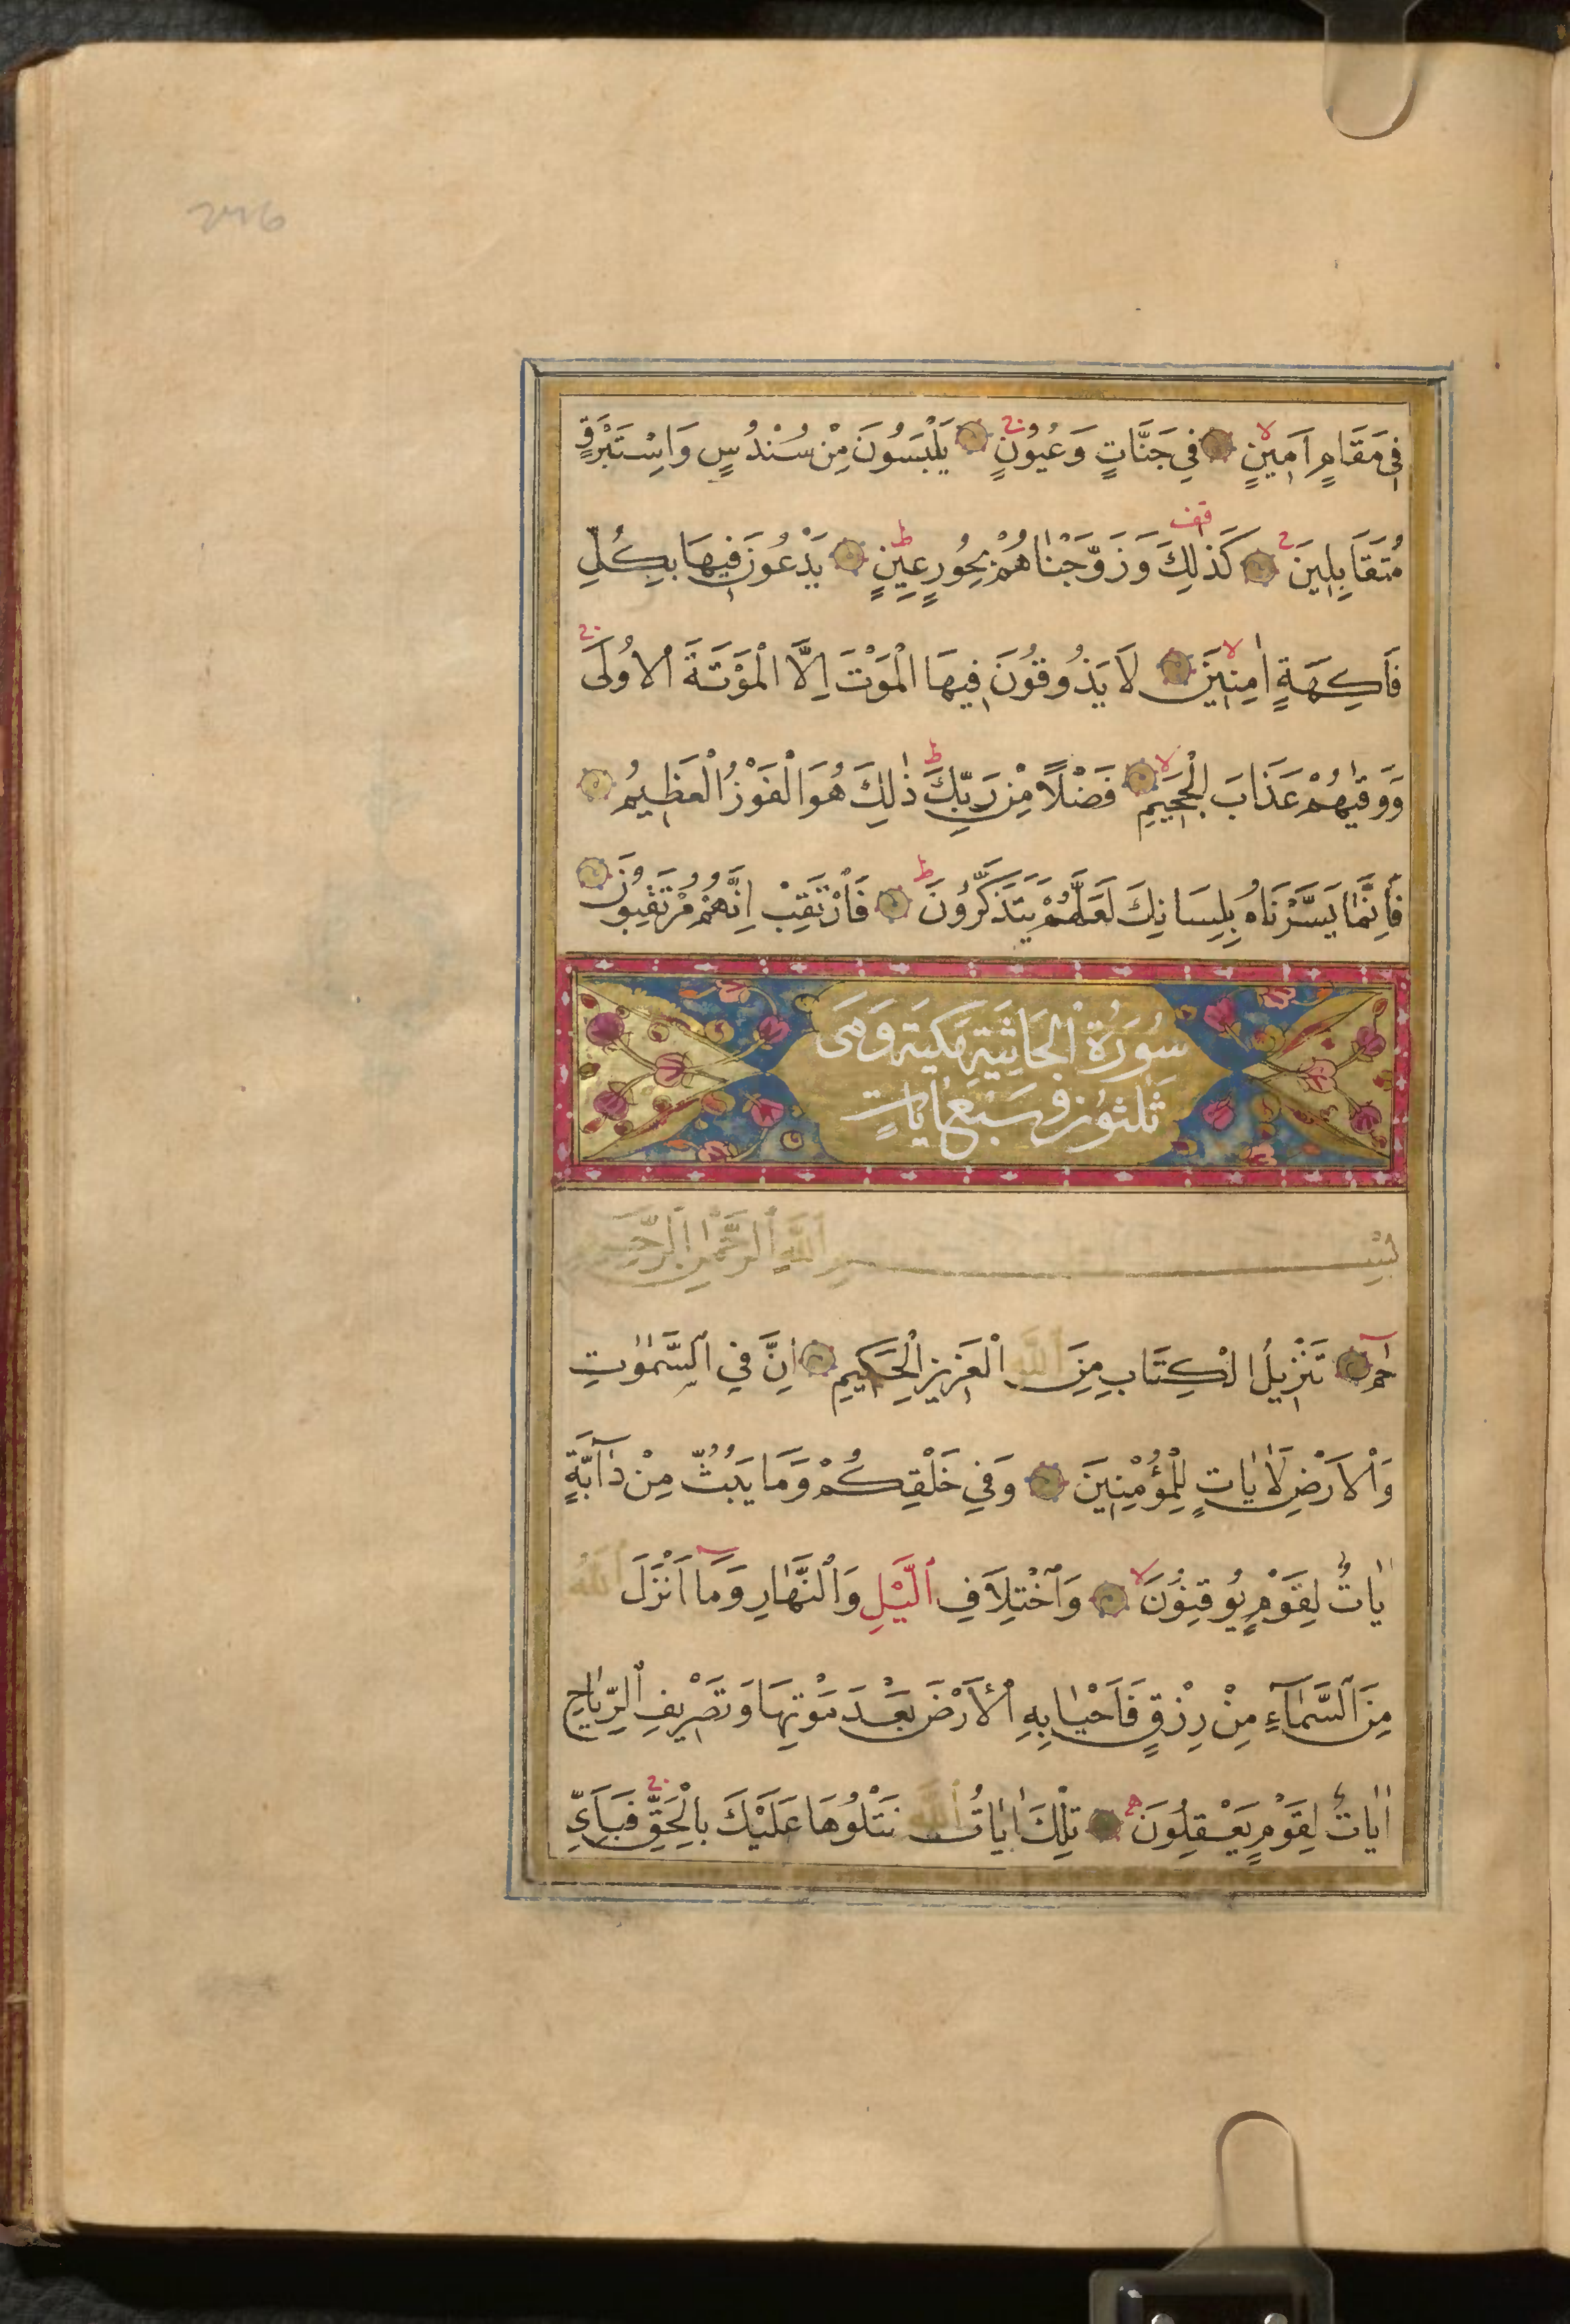 فِي مَقَامٍ اَمِينٍ فِي جَنَّاتٍ وَعُيُونٍ يَلْبَسُونَ مِنْ سُنْدُسٍ وَاِسْتَبْرَقٍ
مُتَقَابِلِينَ كَذٰلِكَ وَزَوَّجْنَاهُمْ بِحُورٍ عِينٍ يَدْعُونَ فِيهَا بِكُلِّ
فَاكِهَةٍ اٰمِنِينَ لَا يَذُوقُونَ فِيهَا الْمَوْتَ اِلَّا الْمَوْتَةَ الْاُولَى
وَوَقٰيهُمْ عَذَابَ الْجَحِيمِ فَضْلًا مِنْ رَبِّكَ ذٰلِكَ هُوَ الْفَوْزُ الْعَظِيمُ
فَاِنَّمَا يَسَّرْنَاهُ بِلِسَانِكَ لَعَلَّهُمْ يَتَذَكَّرُونَ فَارْتَقِبْ اِنَّهُمْ مُرْتَقِبُونَ
سُورَةُ الْجَاثِيَةِ مَكِيَة وَهَى
ثَلٰثُونَ وَ سَبْعُ اٰيَاتٍ
بِسْمِ اللّٰهِ الرَّحْمٰنِ الرَّحِيمِ
حٰمٓ تَنْزِيلُ الْكِتَابِ مِنَ اللّٰهِ الْعَزِيزِ الْحَكِيمِ اِنَّ فِي السَّمٰوٰتِ
وَالْاَرْضِ لَاٰيَاتٍ لِلْمُؤْمِنِينَ وَفِي خَلْقِكُمْ وَمَا يَبُثُّ مِنْ دَآبَّةٍ
اٰيَاتٌ لِقَوْمٍ يُوقِنُونَ وَاخْتِلَافِ الَّيْلِ وَالنَّهَارِ وَمَآ اَنْزَلَ اللّٰهُ
مِنَ السَّمَآءِ مِنْ رِزْقٍ فَاَحْيَا بِهِ الْاَرْضَ بَعْدَ مَوْتِهَا وَتَصْرِيفِ الرِّيَاحِ
اٰيَاتٌ لِقَوْمٍ يَعْقِلُونَ تِلْكَ اٰيَاتُ اللّٰهِ نَتْلُوهَا عَلَيْكَ بِالْحَقِّ فَبِاَيِّ